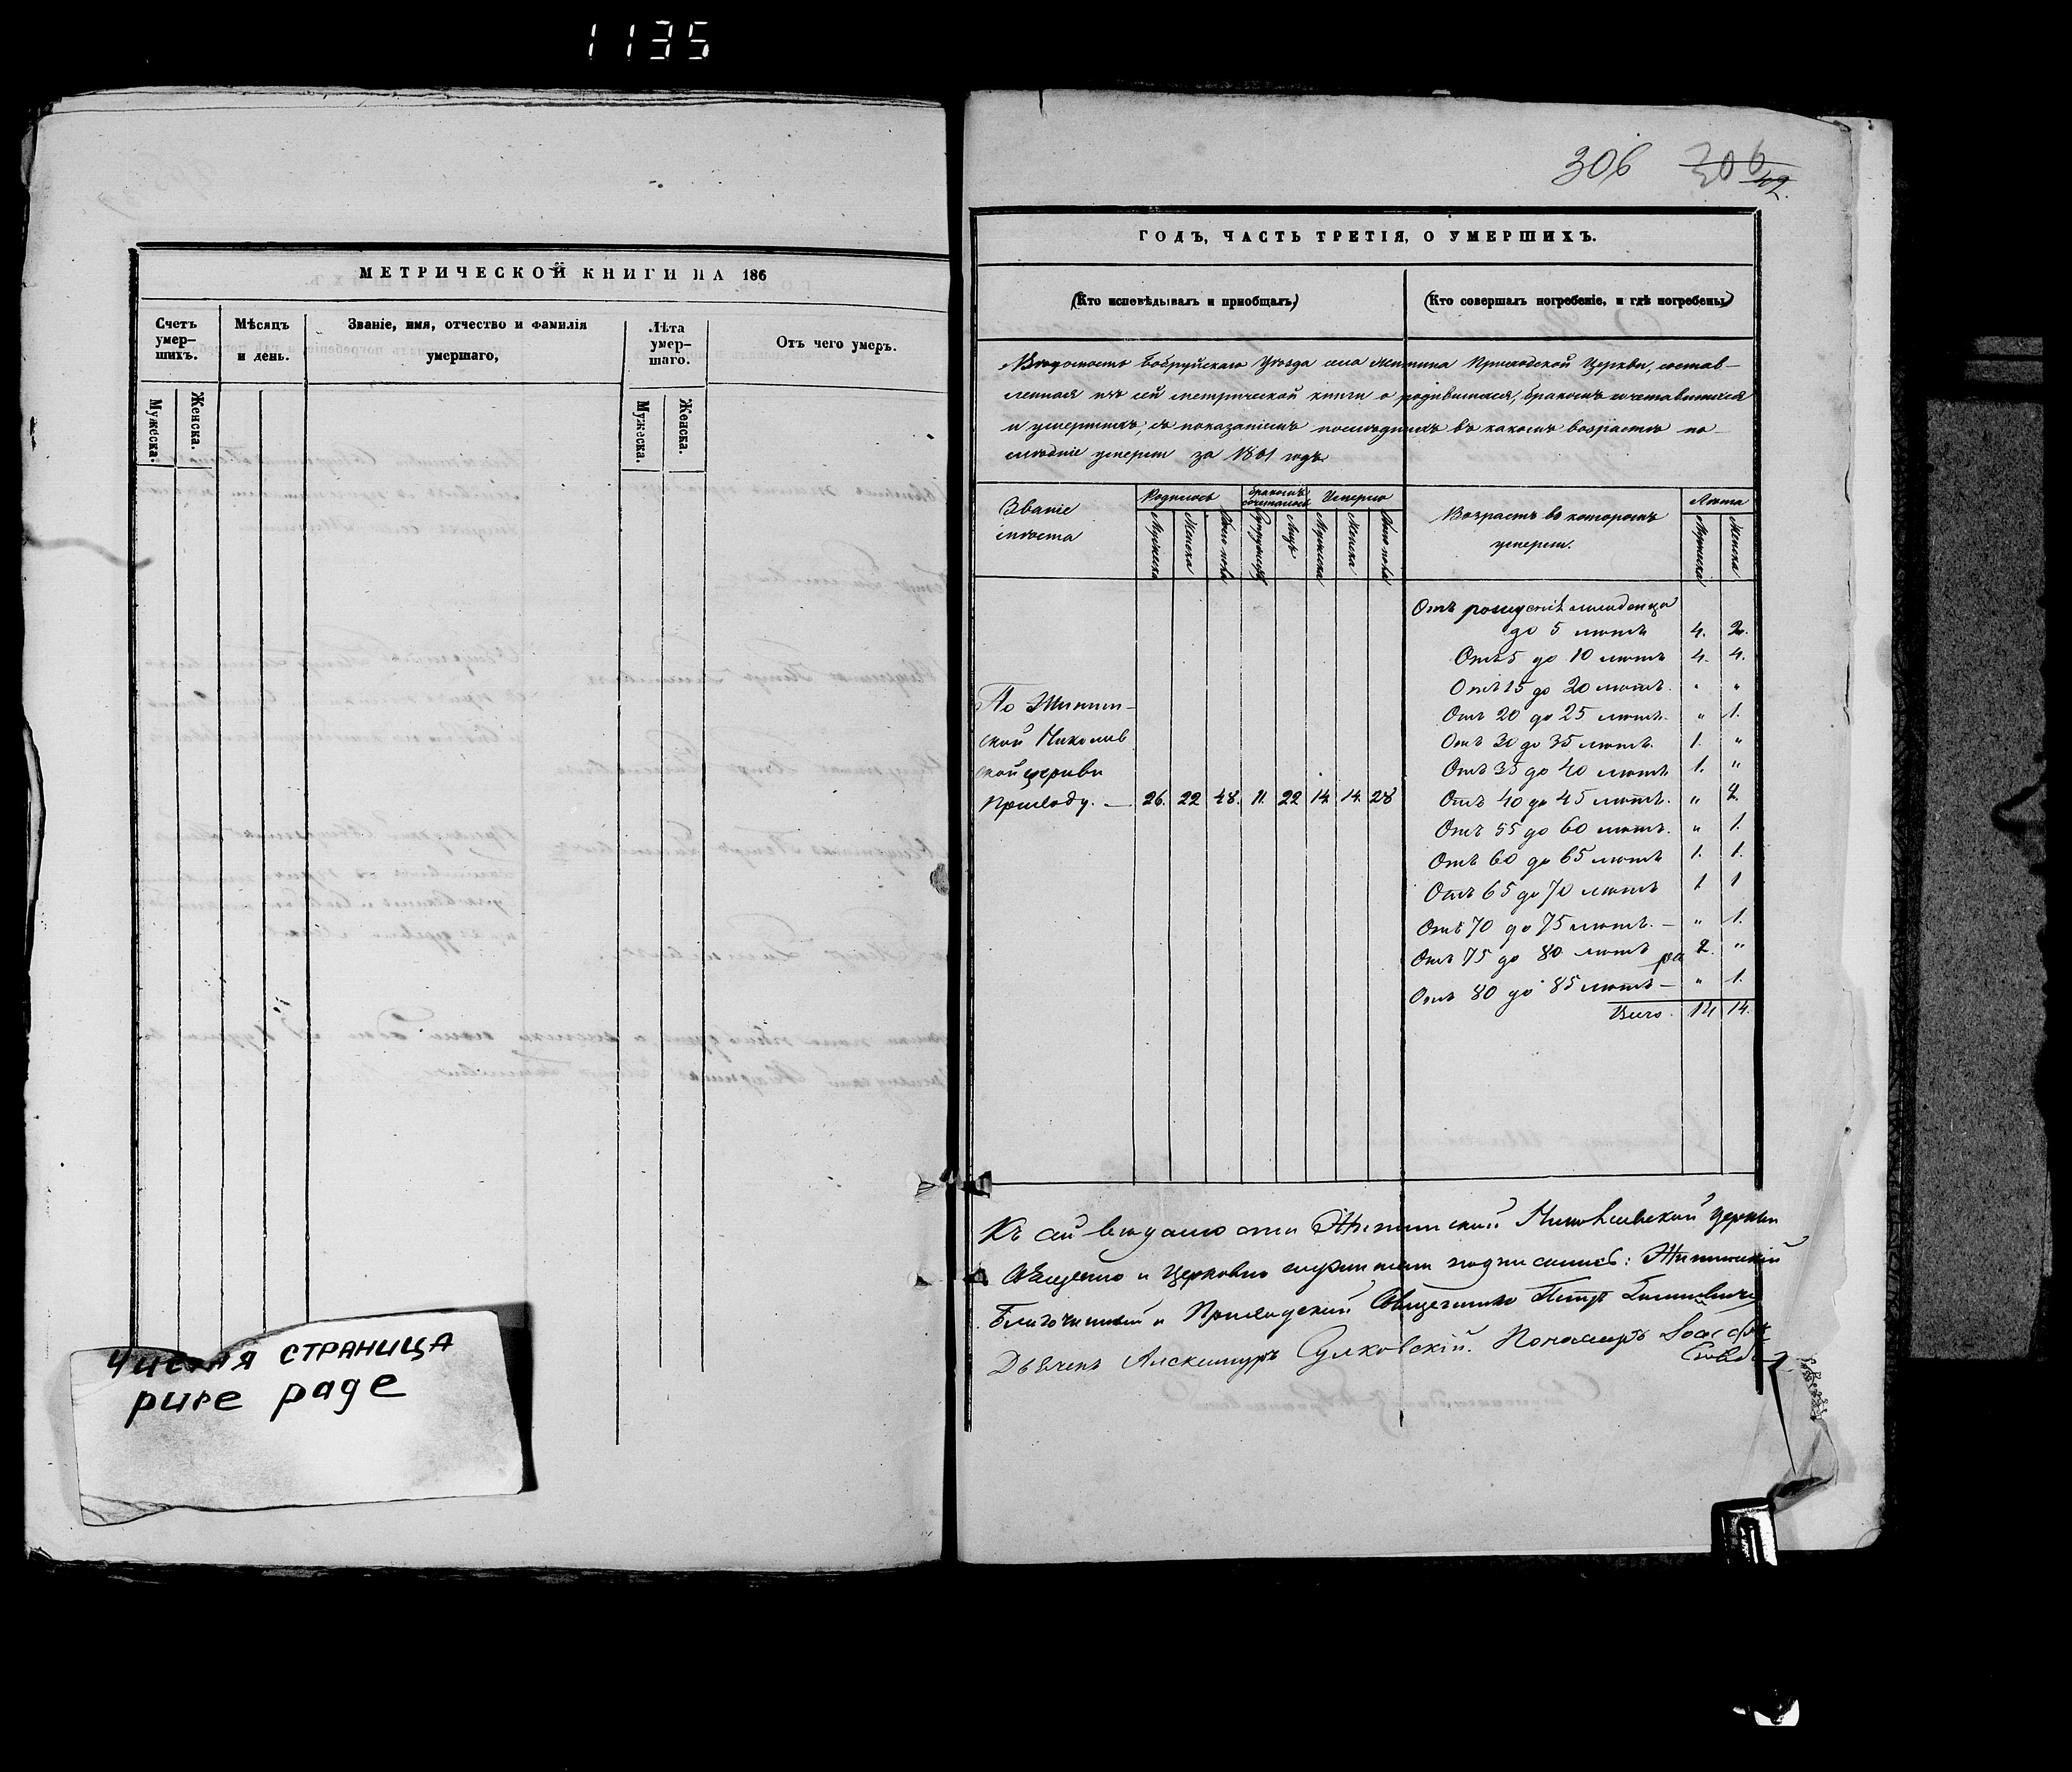 1135
МЕТРИЧЕСКОЙ КНИГИ НА 186
Счетъ умер-шихъ.
Мѣсяцъ и день.
Званіе, имя, отчество и фамилія умершаго,
Лѣта умер-шаго.
Отъ чего умеръ.
Мужеска.
Женска.
Мужеска.
Женска.
Чистая страница
pure page
306 306
42.
ГОДЪ, ЧАСТЬ ТРЕТІЯ, О УМЕРШИХЪ.
(Кто исповѣдывалъ и пріобщалъ,)
(Кто совершалъ погребеніе, и гдѣ погребены,)
Вѣдомость Бобруйскаго Уѣзда села Житина Приходской Церкви, состав-
ленная изъ сей метрической книги о родившихся, бракомъ сочетавшихся
и умершихъ, съ показаніемъ послѣднихъ въ какомъ возрастѣ по-
слѣдніе умерли за 1861 годъ.
Званіе мѣста
Родилось
Бракомъ сочеталось
Умерло
Возрастъ въ которомъ умерли.
Лѣта
Мужеска
Женска
Обоего пола
Супружествъ
Лицъ
Мужеска
Женска
Обоего пола
Мужеска
Женска
По Житин-
ской Николаев
ской церкви
Приходу. — 26. 22 48. 11. 22 14. 14. 28
Отъ рожденія младенца
до 5 лѣтъ 4. 2.
Отъ 5 до 10 лѣтъ 4. 4.
Отъ 15 до 20 лѣтъ. " "
Отъ 20 до 25 лѣтъ. " 1.
Отъ 30 до 35 лѣтъ. 1. "
Отъ 35 до 40 лѣтъ 1. "
Отъ 40 до 45 лѣтъ. " 2.
Отъ 55 до 60 лѣтъ. " 1.
Отъ 60 до 65 лѣтъ 1. 1.
Отъ 65 до 70 лѣтъ 1 1
Отъ 70 до 75 лѣтъ. — " 1.
Отъ 75 до 80 лѣтъ 2. "
Отъ 80 до 85 лѣтъ — " 1.
Всего 14 14.
Къ сей вѣдомости Житинской Николаевской Церкви
Священно и Церковно служители подписались: Житинскій
Благочинный и Приходскій Священникъ Петръ
Дьячекъ Александръ Сулковскій. Пономарь